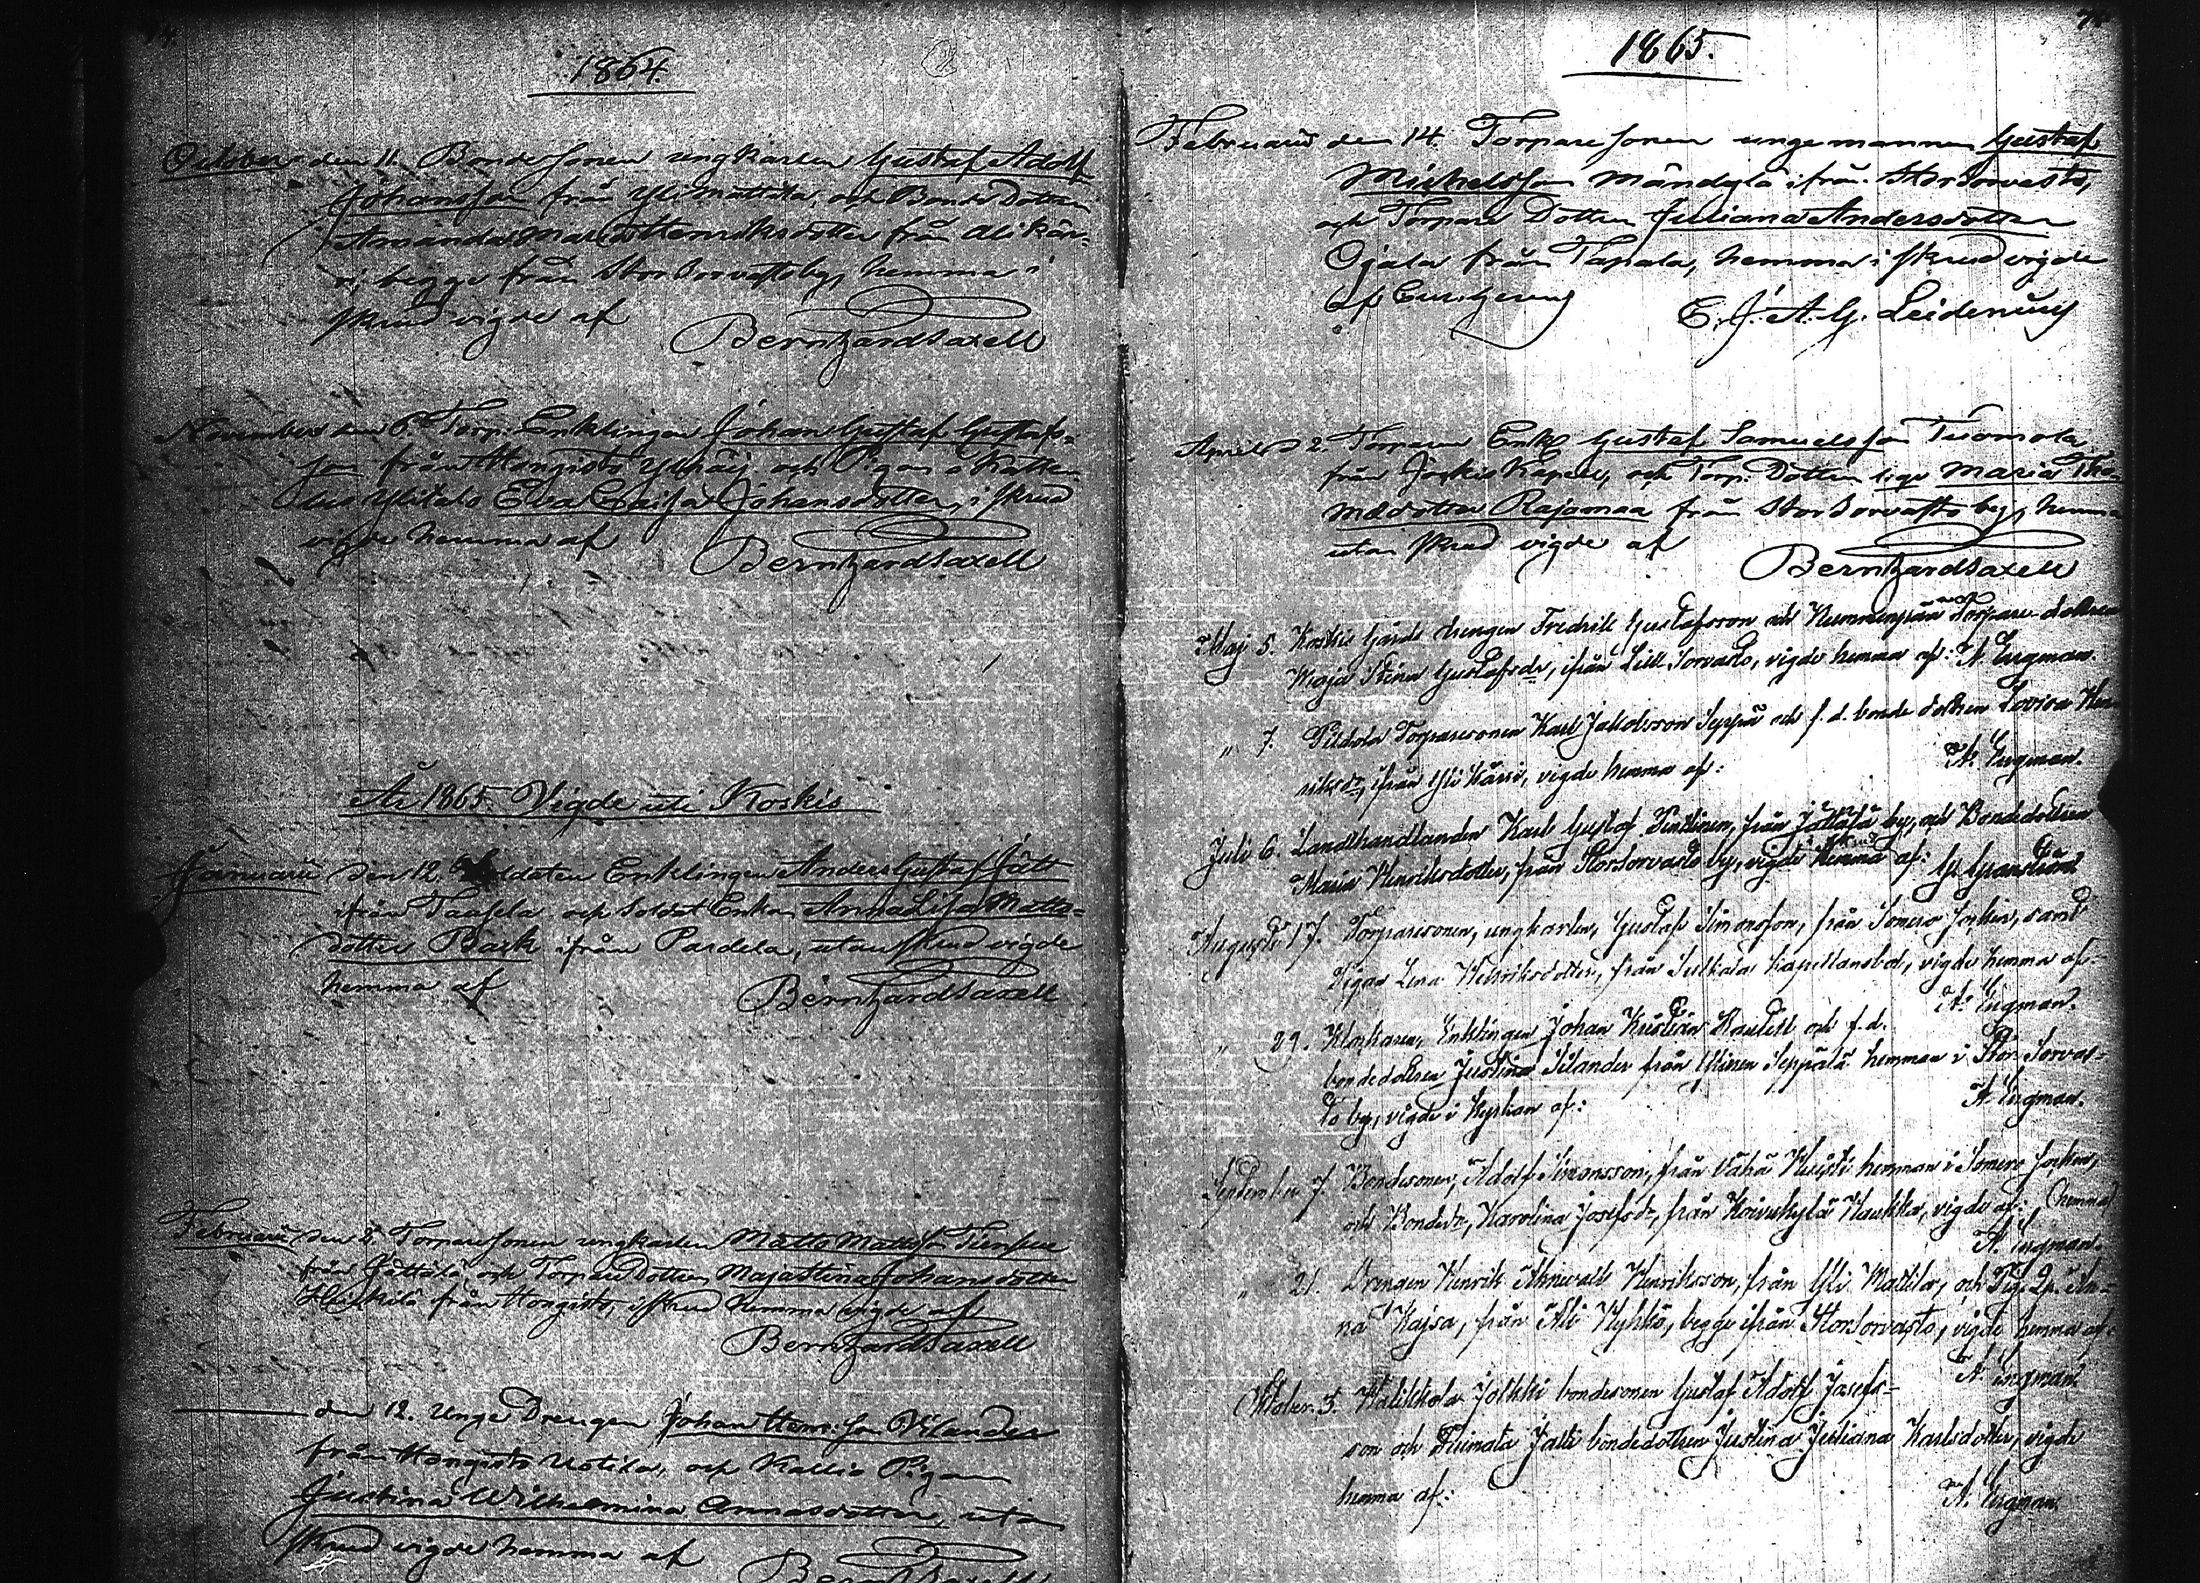 1864.
October den 11. Bonde sonen ungkarlen Gustaf Adolf
Johansson från Yli Mattila, och Bonde Dottren
Amanda Maria Henriksdotter från Ali Kär-
ri, begge från Storsorvasto by, hemma i
skrud vigde af
Bernhard Saxell
November den 6. Torp. Enklingen Johan Gustaf Gustafs-
son från Hongisto och Pigan
Ylitalo Eva Caisa Johansdotter, i skrud
vigde hemma af
Bernhard Saxell
År 1865 Vigde uti Koskis
Januarii den 12. Soldaten Enklingen Anders Gustaf Jätt
ifrån Taatila och Soldat Enkan Anna Lisa Matts-
dotter Bark ifrån Pardela, utan skrud vigde
hemma af
Bernhard Saxell
Februarii den 5. Torpare sonen ungkarlen Matts Mattsson
från Jättälä, och Torpare Dottren Maja Stina Johansdotter
Heikilä från Hongisto, i skrud hemma vigde af
Bernhard Saxell
den 12. Unge Drengen Johan Henr:son Vilander
från Hongisto Uotila, och Kallio Pigan
Justina Wilhelmina Annasdotter, utan
skrud vigde hemma af
Bernhard Saxell
1865.
Februarii den 14. Torpare sonen unge mannen Gustaf
Michelsson Mändylä ifrån Storsorvasto,
och Torpare Dottren Juliana Andersdotter
Ojala från Tapala, hemma i skrud vigde
af
E. J. A. G. Leidenius
April d 2. Torparen Enkl. Gustaf Samuelsson Tuomola
från Jockis Kapell, och Torp. Dottren Maria Tho-
masdotter Rajamaa från Storsorvasto by, hemma
utan skrud vigde af
Bernhard Saxell
Maj 5. Koskis Gårds drengen Fredrik Gustafsson och Torpare-dottren
Maja Stina Gustafsdr, ifrån Lill Sorvasto, vigde hemma af: A. Engman.
" 7. Torparesonen Karl Jakobsson Seppä och f.d. bonde dottren Lovisa Hen-
riksdr, ifrån Yli Kärri, vigde hemma af:
A. Engman.
Juli 6. Landthandlanden Karl Gustaf Penttinen, från Jättälä by, och Bondedottren
Maria Henriksdotter, från Storsorvasto by, vigde i skrud hemma af: G. Granström
Augusti 17. Torparesonen, ungkarlen, Gustaf Simonsson, från Somero Socken, samt
Pigan Lena Henriksdotter, från Kapellansbol, vigde hemma af-
A. Engman.
" 29. Klockaren, Enklingen Johan Kristian och f.d.
bondedottren Justina Silander från Seppälä hemman i Stor-Sorvas-
to by, vigde i Kyrkan af:
A. Engman.
September 7. Bondesonen, Adolf Simonsson, från Vähä hemman i Somero Socken,
och Bondedr, Karolina Josefsdr, från Koivukylä Haukka, vigde af: (hemma)
A. Engman.
" 21. Drengen Henrik Henriksson, från Yli Mattila, och Pig. An-
na Kajsa, från Ali Kyhkö, begge ifrån StorSorvasto, vigde hemma af:
A. Engman.
Oktober 5. bondesonen Gustaf Adolf Josefs-
son och bondedottren Justina Juliana Karlsdotter, vigde
hemma af:
A. Engman